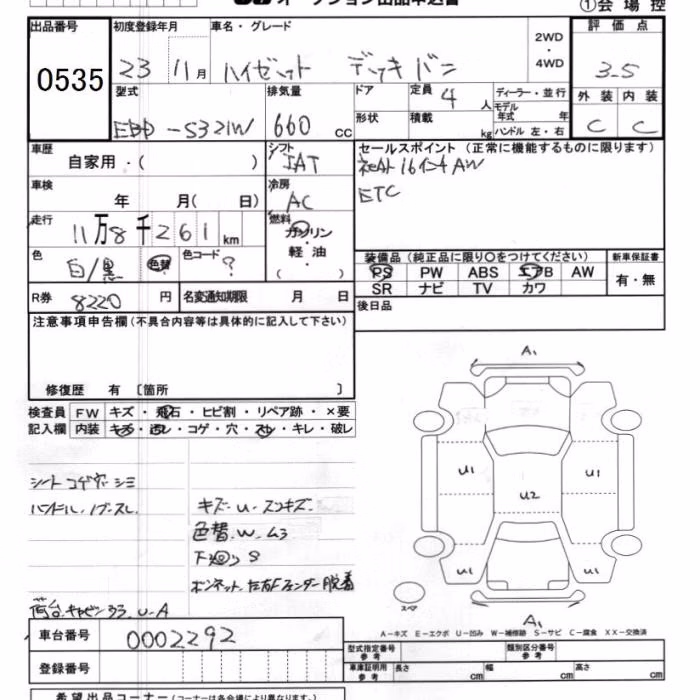 オークション出品申込書
①会場控
出品番号 初度登録年月 車名・グレード 2WD ・ 4WD 評価点
0535 23 11月 ハイゼット デッキバン 3.5
型式 排気量 ドア 定員 4 人 ディーラー・並行 外装 内装
EBD-S321W 660 cc 形状 積載 kg モデル年式 年 ハンドル 左・右 C C
車歴 自家用・( ) シフト IAT セールスポイント (正常に機能するものに限ります)
社外16インチAW
車検 年 月( 日) 冷房 AC ETC
走行 11万8千261km 燃料 ガソリン・軽油 ( )
色 白/黒 色替 色コード ? 装備品 (純正品に限り○をつけてください) 新車保証書
PS PW ABS エアB AW 有・無
SR ナビ TV カワ
R券 8220 円 名変通知期限 月 日 後日品
注意事項申告欄(不具合内容等は具体的に記入して下さい)
修復歴 有 〔箇所 〕
検査員 FW キズ・飛石・ヒビ割・リペア跡・×要
記入欄 内装 キズ・汚レ・コゲ・穴・スレ・キレ・破レ
シート コゲ シミ
ハンドル.ノブスレ.
キズ.U.スリキズ.
色替.W.ムラ
下回リ S
ボンネット.左右Fフェンダー脱着
荷台.キャビン U-A
A1
U1 U2 U1
U1 U1
スペア
A1
A-キズ E-エクボ U-凹み W-補修跡 S-サビ C-腐食 XX-交換済
車台番号 0002292
型式指定番号 参考 類別区分番号 参考
登録番号 車庫証明用 参考 長さ cm 幅 cm 高さ cm
希望出品コーナー (コーナーは各会場により異なります。)